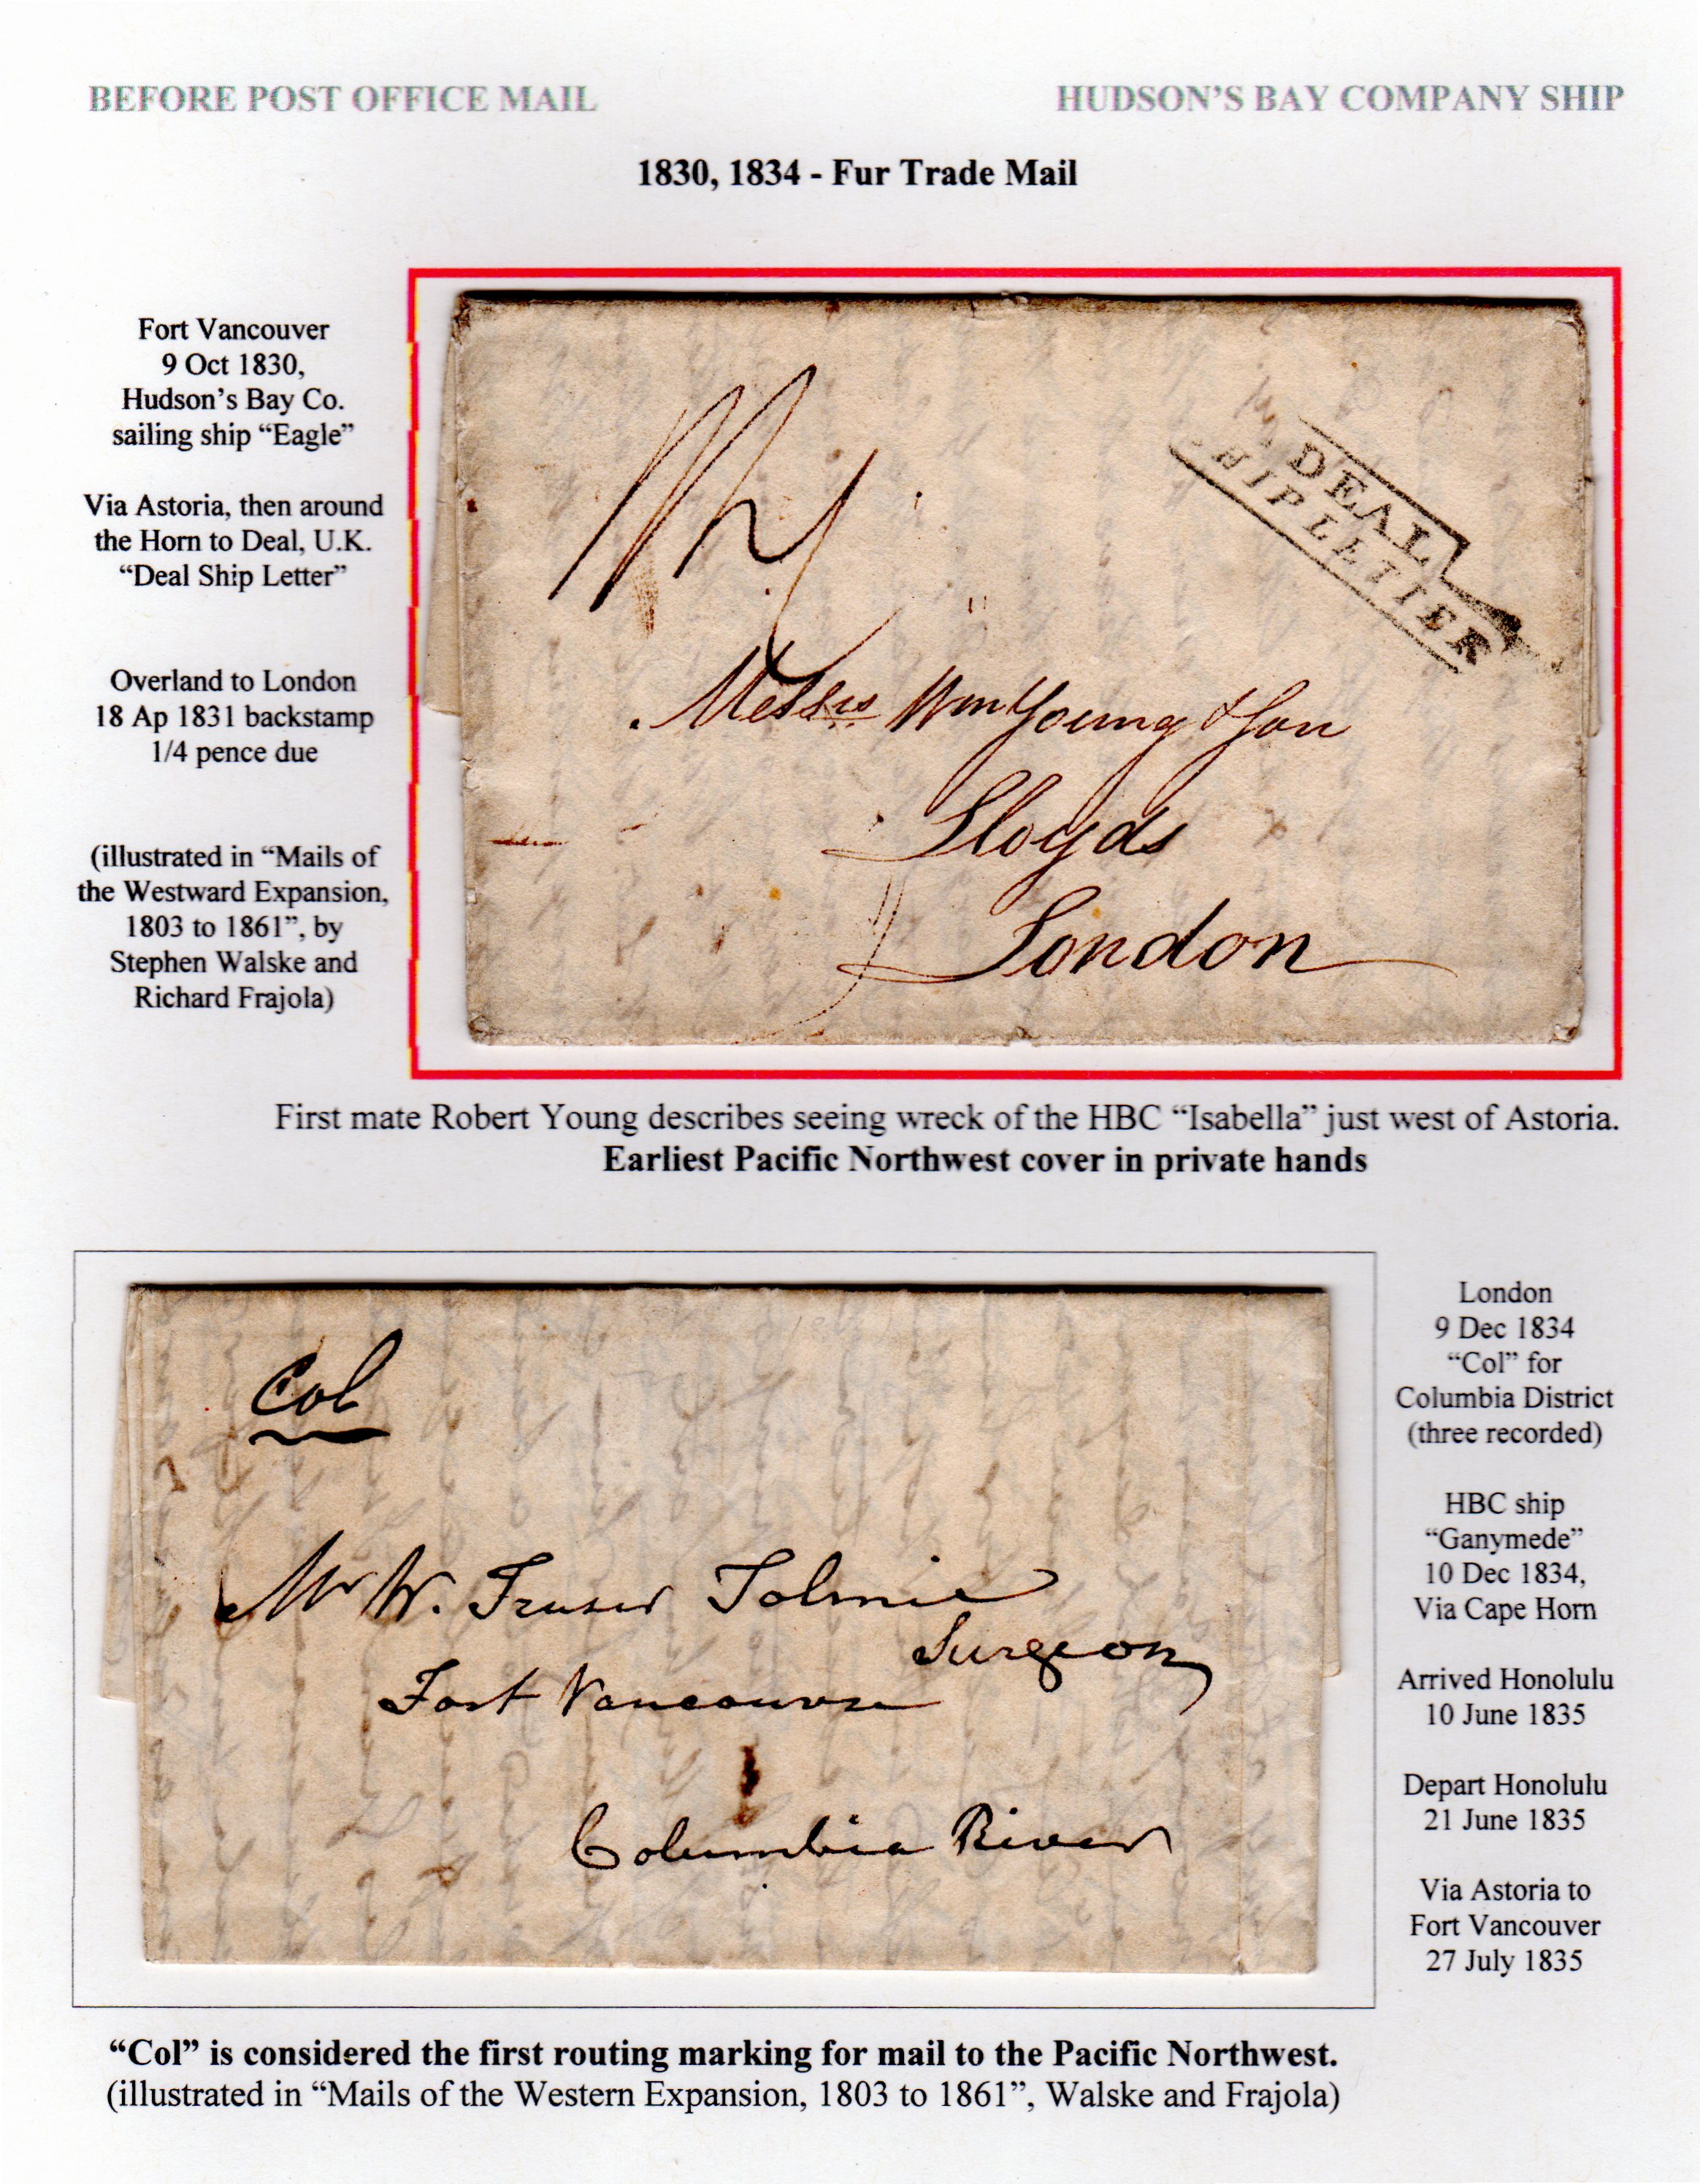 BEFORE POST OFFICE MAIL
HUDSON'S BAY COMPANY SHIP
1830, 1834 - Fur Trade Mail
Fort Vancouver
9 Oct 1830,
Hudson's Bay Co.
sailing ship “Eagle”
Via Astoria, then around
the Horn to Deal, U.K.
“Deal Ship Letter”
Overland to London
18 Ap 1831 backstamp
1/4 pence due
(illustrated in “Mails of
the Westward Expansion,
1803 to 1861”, by
Stephen Walske and
Richard Frajola)
DEAL
SHIP LETTER
Messrs Wm Young & Son
Lloyds
London
First mate Robert Young describes seeing wreck of the HBC “Isabella” just west of Astoria.
Earliest Pacific Northwest cover in private hands
Col
Mr W. Fraser Tolmie
Surgeon
Fort Vancouver
Columbia River
London
9 Dec 1834
“Col” for
Columbia District
(three recorded)
HBC ship
“Ganymede”
10 Dec 1834,
Via Cape Horn
Arrived Honolulu
10 June 1835
Depart Honolulu
21 June 1835
Via Astoria to
Fort Vancouver
27 July 1835
“Col” is considered the first routing marking for mail to the Pacific Northwest.
(illustrated in “Mails of the Western Expansion, 1803 to 1861”, Walske and Frajola)